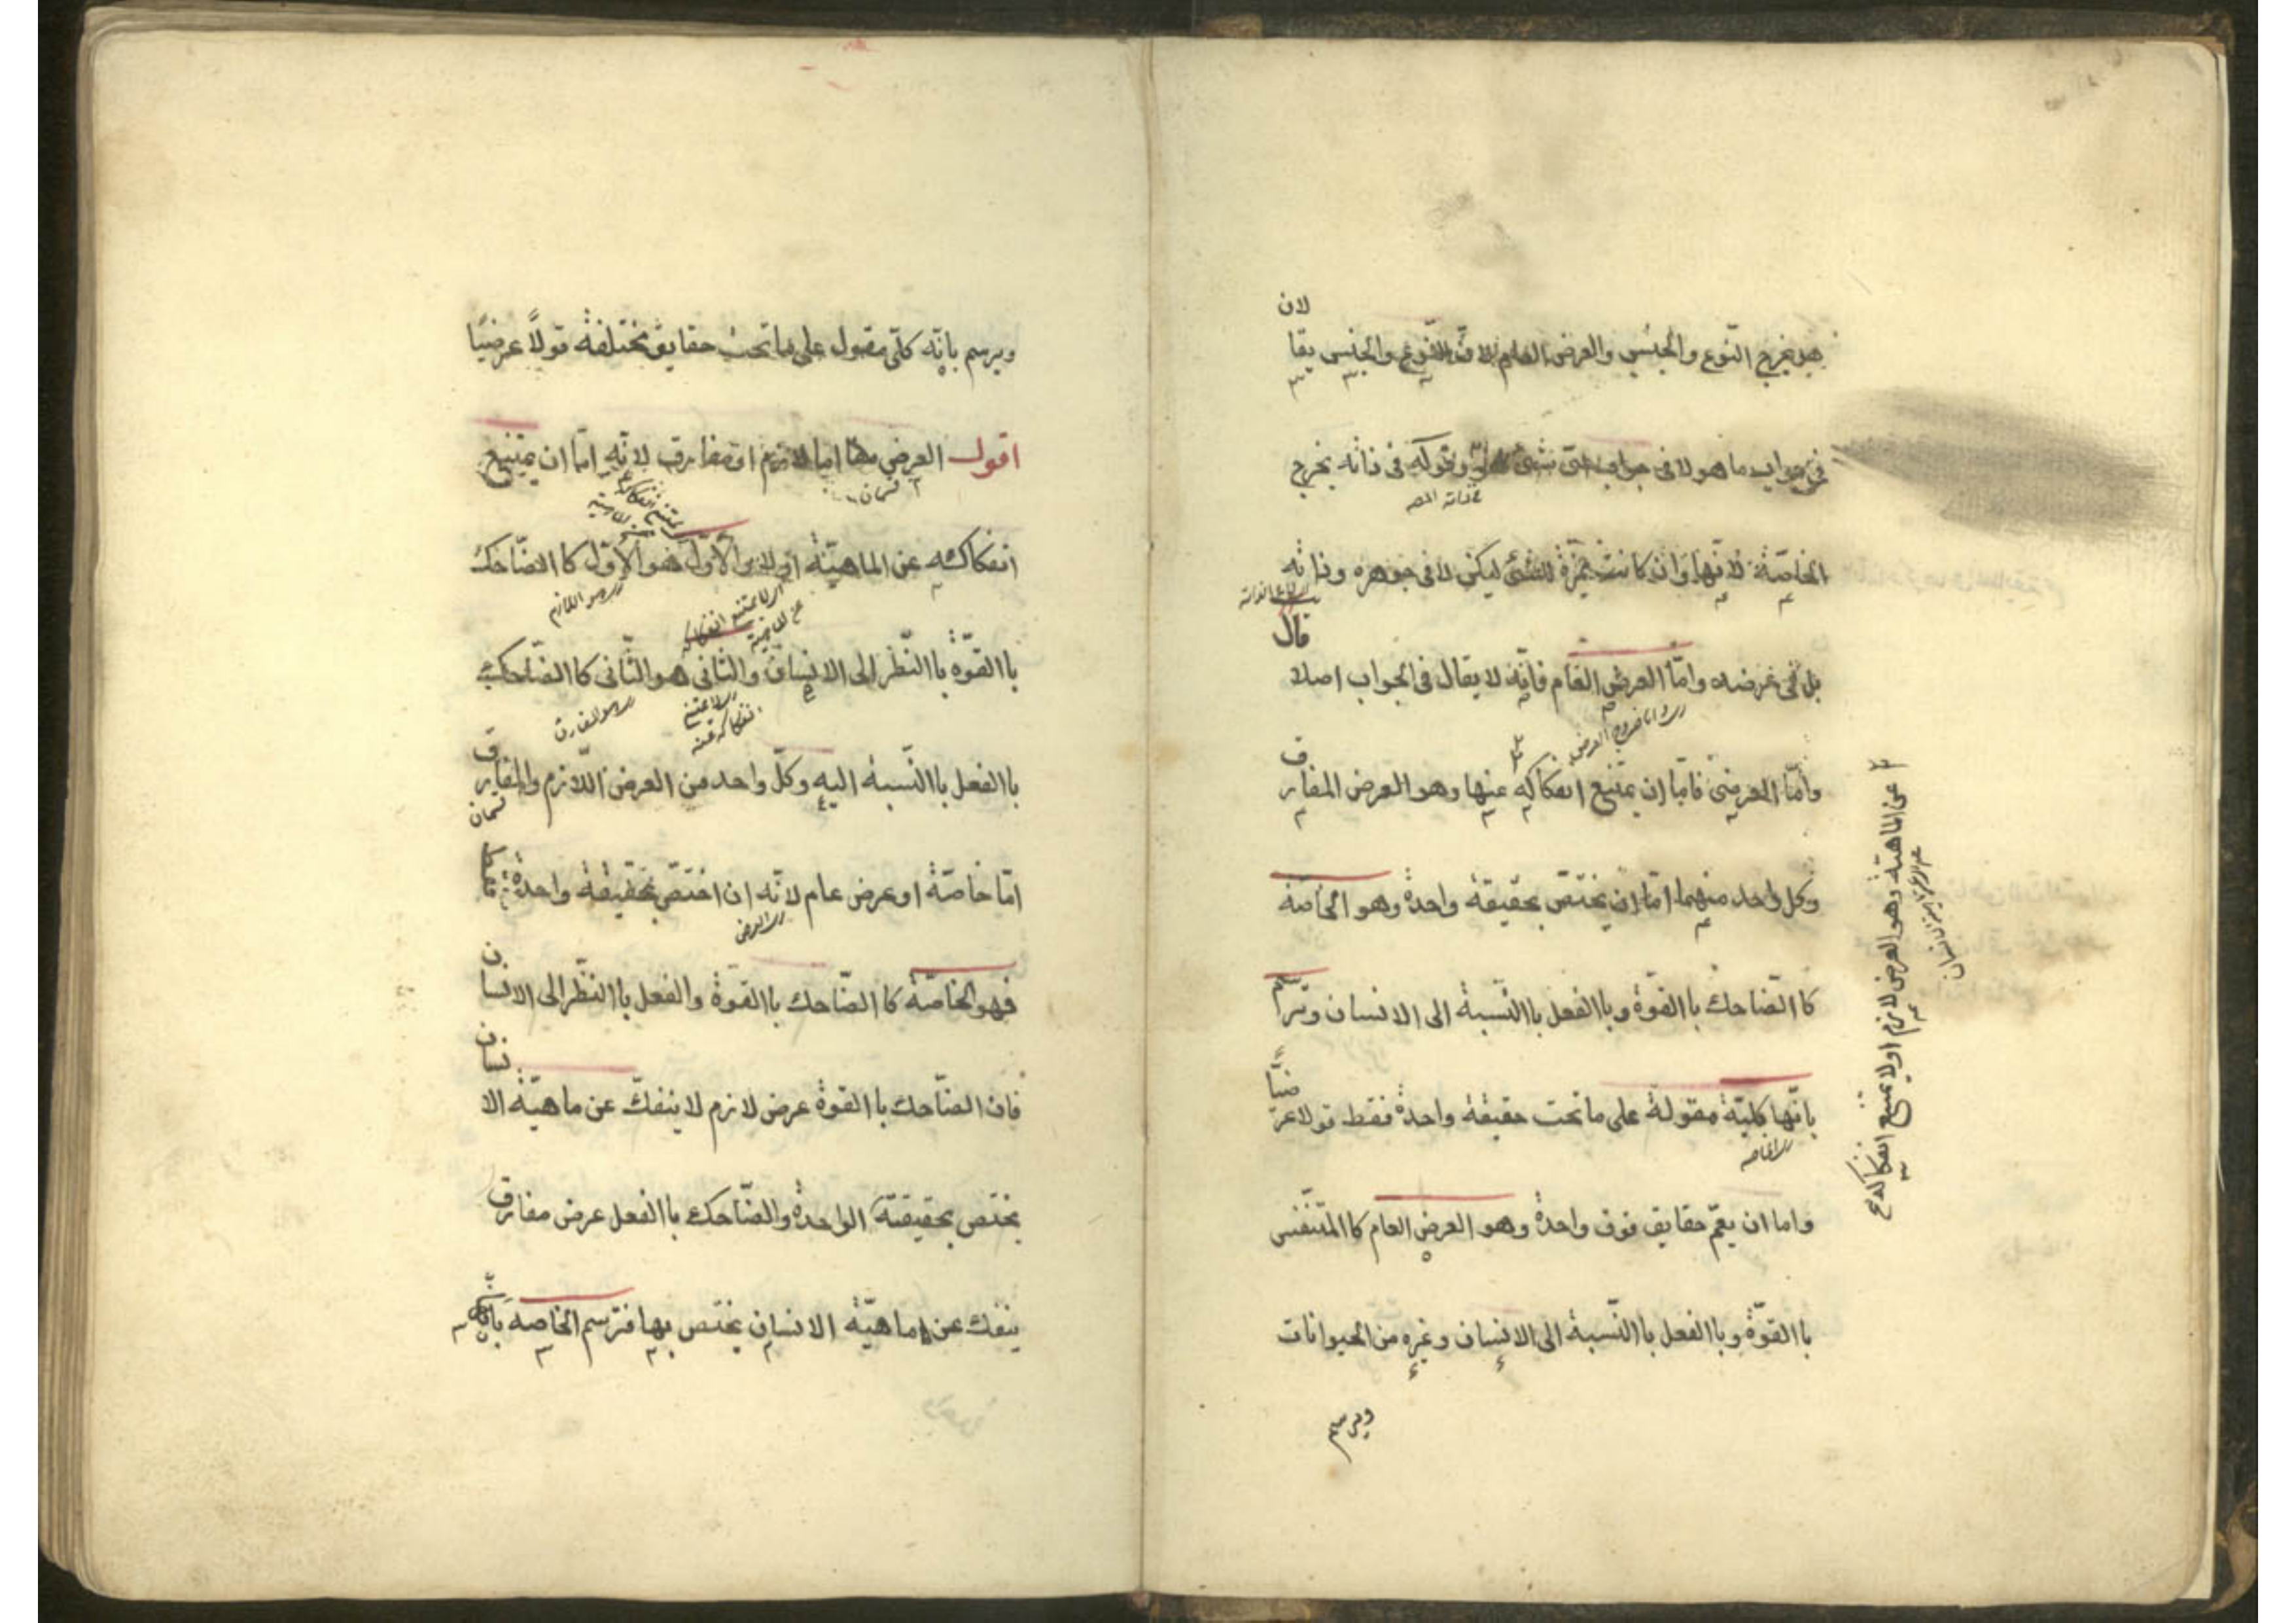 لان
هو يخرج النّوع والجنس والعرض العام لانّ النّوع والجنس يقا
فى جواب ما هو لا فى جواب اىّ شئ هو وقوله فى ذاته يخرج
الخاصّة لانّها وان كانت مميّزة للشئ ليكن لا فى جوهره وذاته
قال
بل فى عرضه وامّا العرض العام فانّه لا يقال فى الجواب اصلا
وامّا العرضى فامّا ان يمتنع انفكاكه عنها وهو العرض المفارق
وكل واحد منهما امّا ان يختصّ بحقيقة واحدة وهو الخاصّة
كا الضّاحك با القوّة وبا الفعل با النّسبة الى الانسان وترسم
بانّها كليّة مقولة على ما تحت حقيقة واحدة فقط قولا عرضيّا
اى الخاصه
واما ان يعمّ حقايق فوق واحدة وهو العرض العام كا المتنفّس
با القوّة وبا الفعل با النّسبة الى الانسان وغيره من الحيوانات
ويرسم
عن الماهيّة وهو العرض لازم اولا يمتنع انفكاكه
ويرسم بانّه كلّى مقول على ما تحت حقايق مختلفة قولاً عرضيّا
اقول العرض امّا لازم او مفارق لانّه امّا ان يمتنع
قسمان
انفكاكه عن الماهيّة اولا والاوّل هو الاوّل كا الضّاحك
وهو اللازم
با القوّة با النّظر الى الانسان والثانى هو الثّانى كا الضّاحك
وهو المفارق
با الفعل با النّسبة اليه وكلّ واحد من العرض اللّازم والمفارق
قسمان
امّا خاصّة او عرض عام لانّه ان اختصّ بحقيقة واحدة
اى العرض
فهو الخاصّة كا الضّاحك با القوّة والفعل با النّظر الى الانسان
فان الضّاحك با القوّة عرض لازم لا ينفكّ عن ماهيّة الانسان
يختص بحقيقته الواحدة والضّاحك با الفعل عرض مفارق
ينفك عن ماهيّة الانسان يختص بها فترسم الخاصه